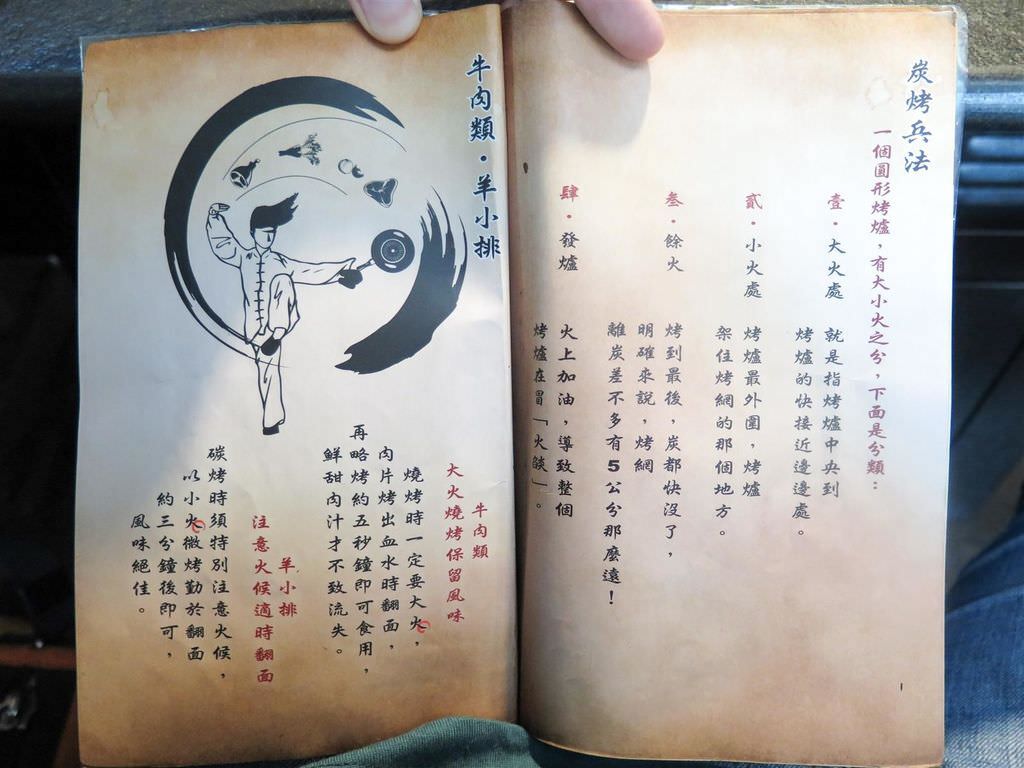 炭烤兵法
一個圓形烤爐，有大小火之分，下面是分類：
壹·大火處
就是指烤爐中央到
烤爐的快接近邊邊處。
貳·小火處
烤爐最外圍，烤爐
架住烤網的那個地方。
叁·餘火
烤到最後，炭都快沒了，
明確來說，烤網
離炭差不多有5公分那麼遠！
肆·發爐
火上加油，導致整個
烤爐在冒「火燄」。
牛肉類·羊小排
牛肉類
大火燒烤保留風味
燒烤時一定要大火，
肉片烤出血水時翻面，
再略烤約五秒鐘即可食用，
鮮甜肉汁才不致流失。
羊小排
注意火候適時翻面
碳烤時須特別注意火候，
以小火微烤勤於翻面
約三分鐘後即可，
風味絕佳。